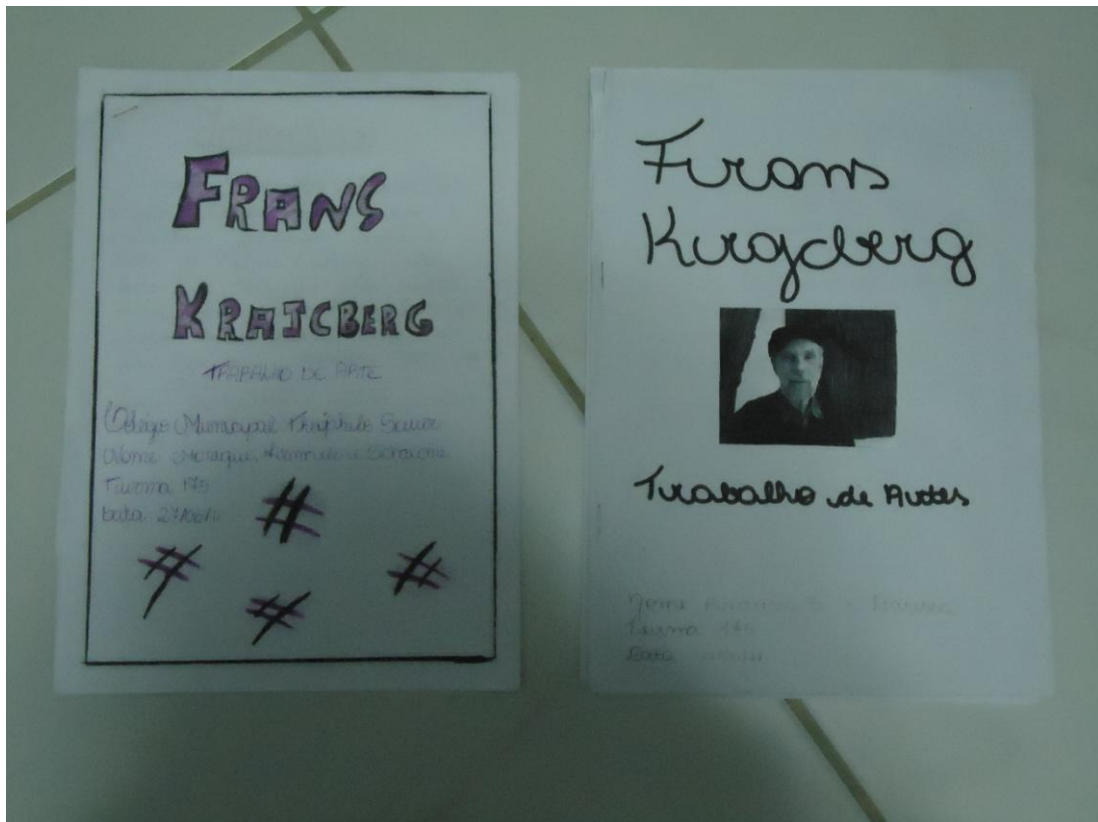 FRANS
KRAJCBERG
TRABALHO DE ARTE
Colégio Municipal
Nome
Turma 175
Data 27/06/11
Frans
Krajcberg
Trabalho de Artes
Nome
Turma 175
Data